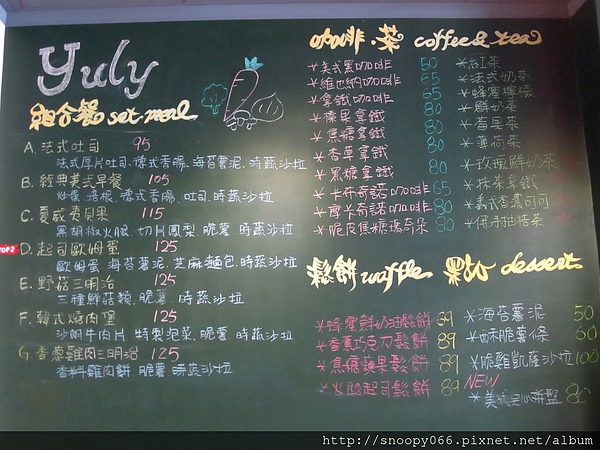 Yuly
組合餐 set meal
A. 法式吐司 95
法式厚片吐司.德式香腸.海苔薯泥.時蔬沙拉
B. 經典美式早餐 105
炒蛋.培根.德式香腸.吐司.時蔬沙拉
C. 夏威夷貝果 115
黑胡椒火腿.切片鳳梨.脆薯.時蔬沙拉
TOP2
D. 起司歐姆蛋 125
歐姆蛋.海苔薯泥.芝麻麵包.時蔬沙拉
E. 野菇三明治 125
三種鮮菇類.脆薯.時蔬沙拉
F. 韓式燒肉堡 125
沙朗牛肉片.特製泡菜.脆薯.時蔬沙拉
G. 香蔥雞肉三明治 125
香料雞肉餅.脆薯.時蔬沙拉
咖啡.茶 coffee & tea
*美式黑咖啡 50
*維也納咖啡 65
*拿鐵咖啡 65
*榛果拿鐵 80
*焦糖拿鐵 80
*香草拿鐵 80
*黑糖拿鐵 80
*卡布奇諾咖啡 65
*摩卡奇諾咖啡 80
*脆皮焦糖瑪奇朵 80
*紅茶
*法式奶茶
*蜂蜜檸檬
*鮮奶茶
*莓果茶
*薄荷茶
*玫瑰鮮奶茶
*抹茶拿鐵
*義式香濃可可
*伊芳柚桔茶
鬆餅 waffle
*蜂蜜鮮奶油鬆餅 69
*香蕉巧克力鬆餅 89
*焦糖蘋果鬆餅 89
*火腿起司鬆餅 89
dessert
*海苔薯泥 50
*酥脆薯條 60
*脆雞凱薩沙拉 100
NEW
*美式點心拼盤 80
http://snoopy066.pixnet.net/album